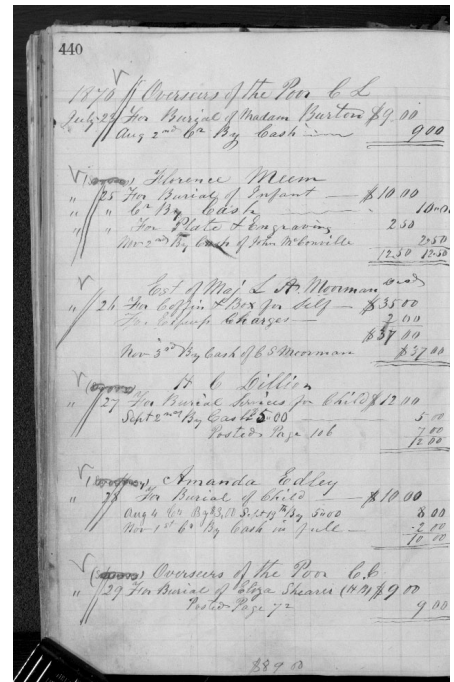 440
1870 Overseers of the Poor C L
July 23 For Burial of Madam Burton $9.00
Aug 2nd Cr By Cash 9 00
Florence Meem
" 25 For Burial of Infant — $10.00
" " Cr By Cash 10.00
" " For Plate & Engraving 2.50
Nov 2nd By Cash of John McConville 2.50
12.50 12.50
Est of Maj L A Moorman
" 26 For Coffin & Box for Self — $35 00
Charges — 2.00
$37 00
Nov 3rd By Cash of C S Moorman $37 00
H C Dillion
" 27 For Burial Services for Child $12 00
Sept 2nd By Cash 5 00 5 00
Posted Page 106 7 00
12 00
Amanda Edley
" 28 For Burial of Child — $10.00
Aug 4 Cr By $3.00 Sept 19th By 5.00 8 00
Nov 1st Cr By Cash in full — 2 00
10 00
Overseers of the Poor C.C.
" 29 For Burial of Eliza Shearer $9 00
Posted Page 72 9 00
$89 00